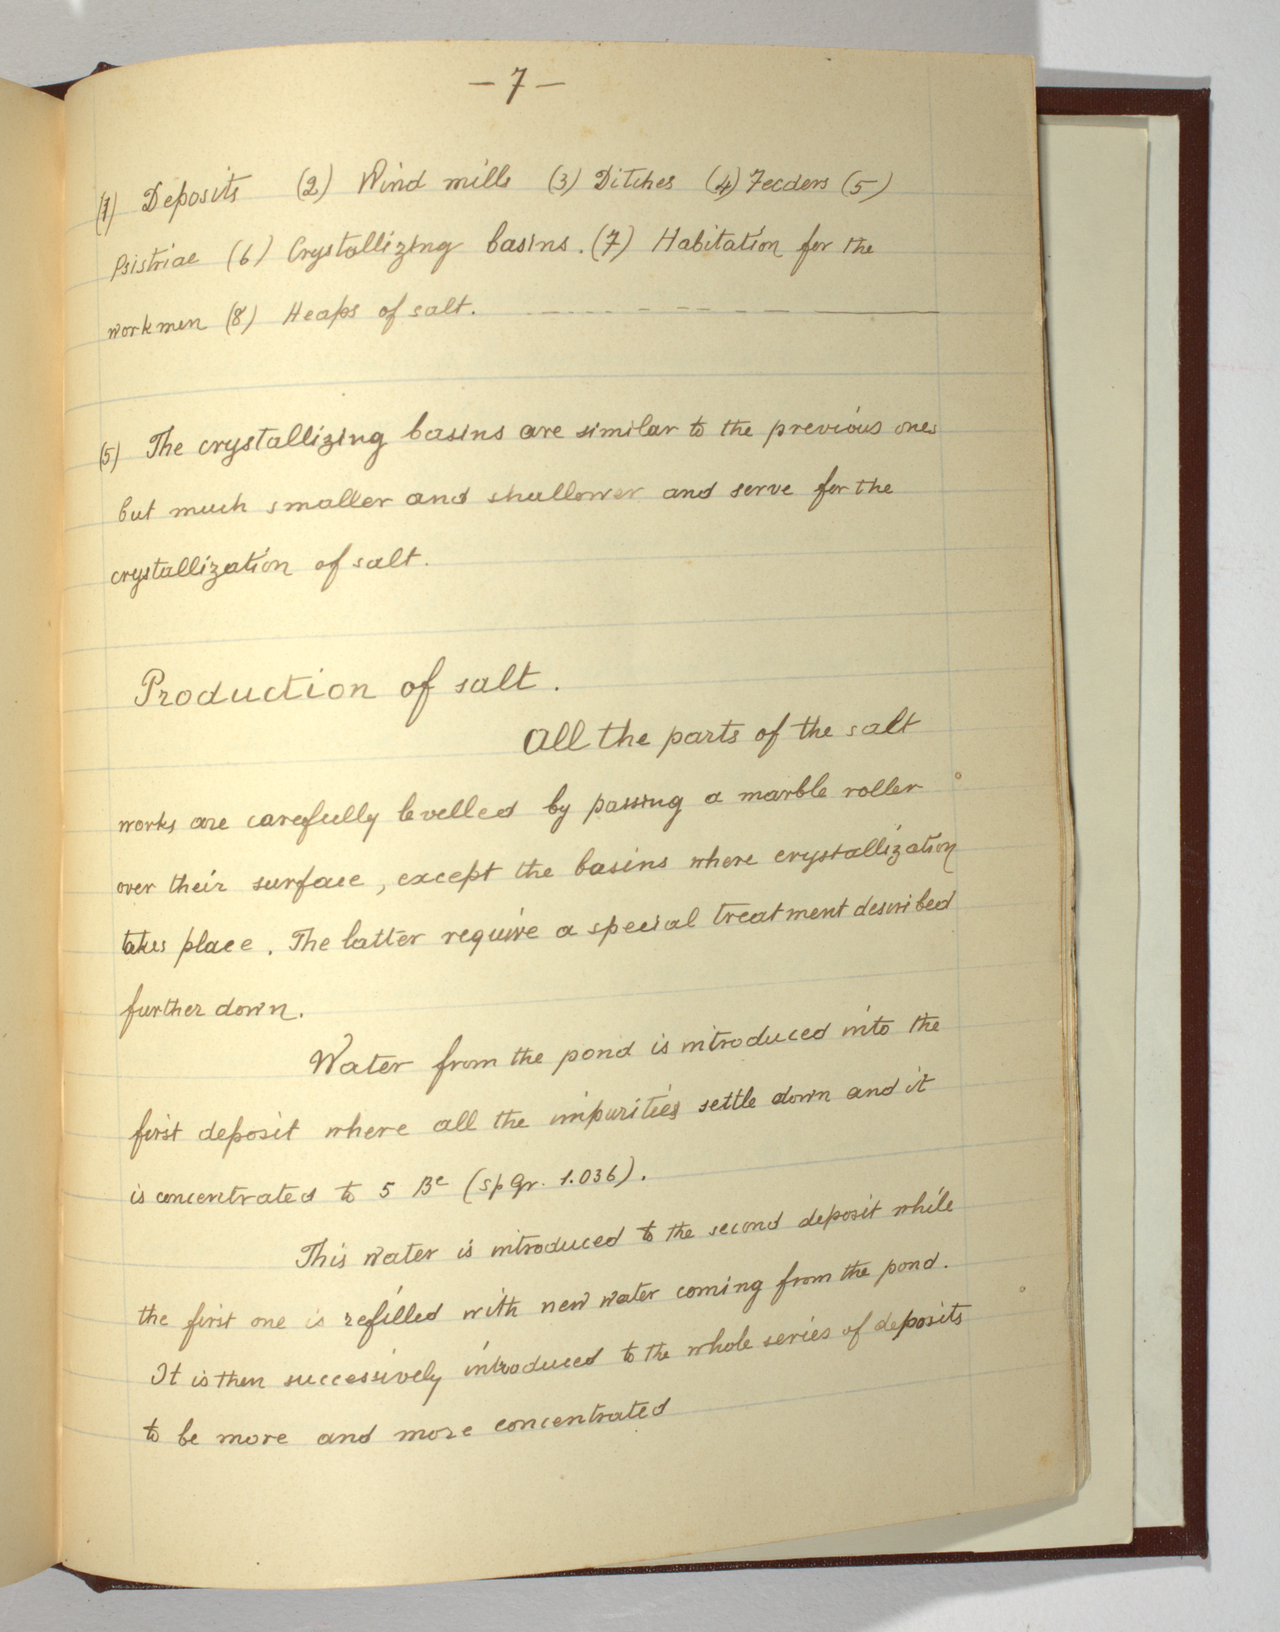 – 7 –
(1) Deposits (2) Wind mills (3) Ditches (4) Feeders (5)
Psistriae (6) Crystallizing basins. (7) Habitation for the
workmen (8) Heaps of salt.
(5) The crystallizing basins are similar to the previous ones
but much smaller and shallower and serve for the
crystallization of salt.
Production of salt.
All the parts of the salt
works are carefully levelled by passing a marble roller
over their surface, except the basins where crystallization
takes place. The latter require a special treatment described
further down.
Water from the pond is introduced into the
first deposit where all the impurities settle down and it
is concentrated to 5 Be (sp Gr. 1.036).
This water is introduced to the second deposit while
the first one is refilled with new water coming from the pond.
It is then successively introduced to the whole series of deposits
to be more and more concentrated